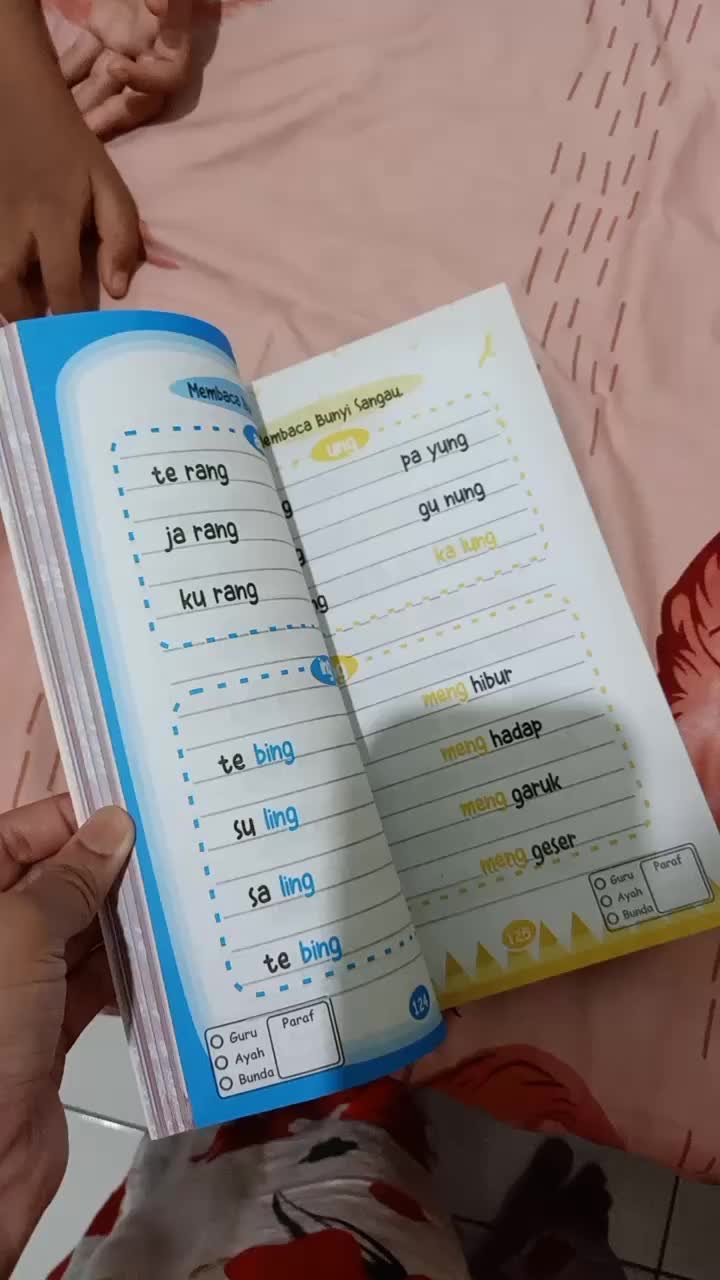 Membaca
te rang
ja rang
ku rang
te bing
su ling
sa ling
te bing
Guru
Ayah
Bunda
Paraf
124
embaca Bunyi Sangau.
ung
g pa yung
g gu nung
ng ka lung
meng hibur
meng hadap
meng garuk
meng geser
Guru
Ayah
Bunda
Paraf
125